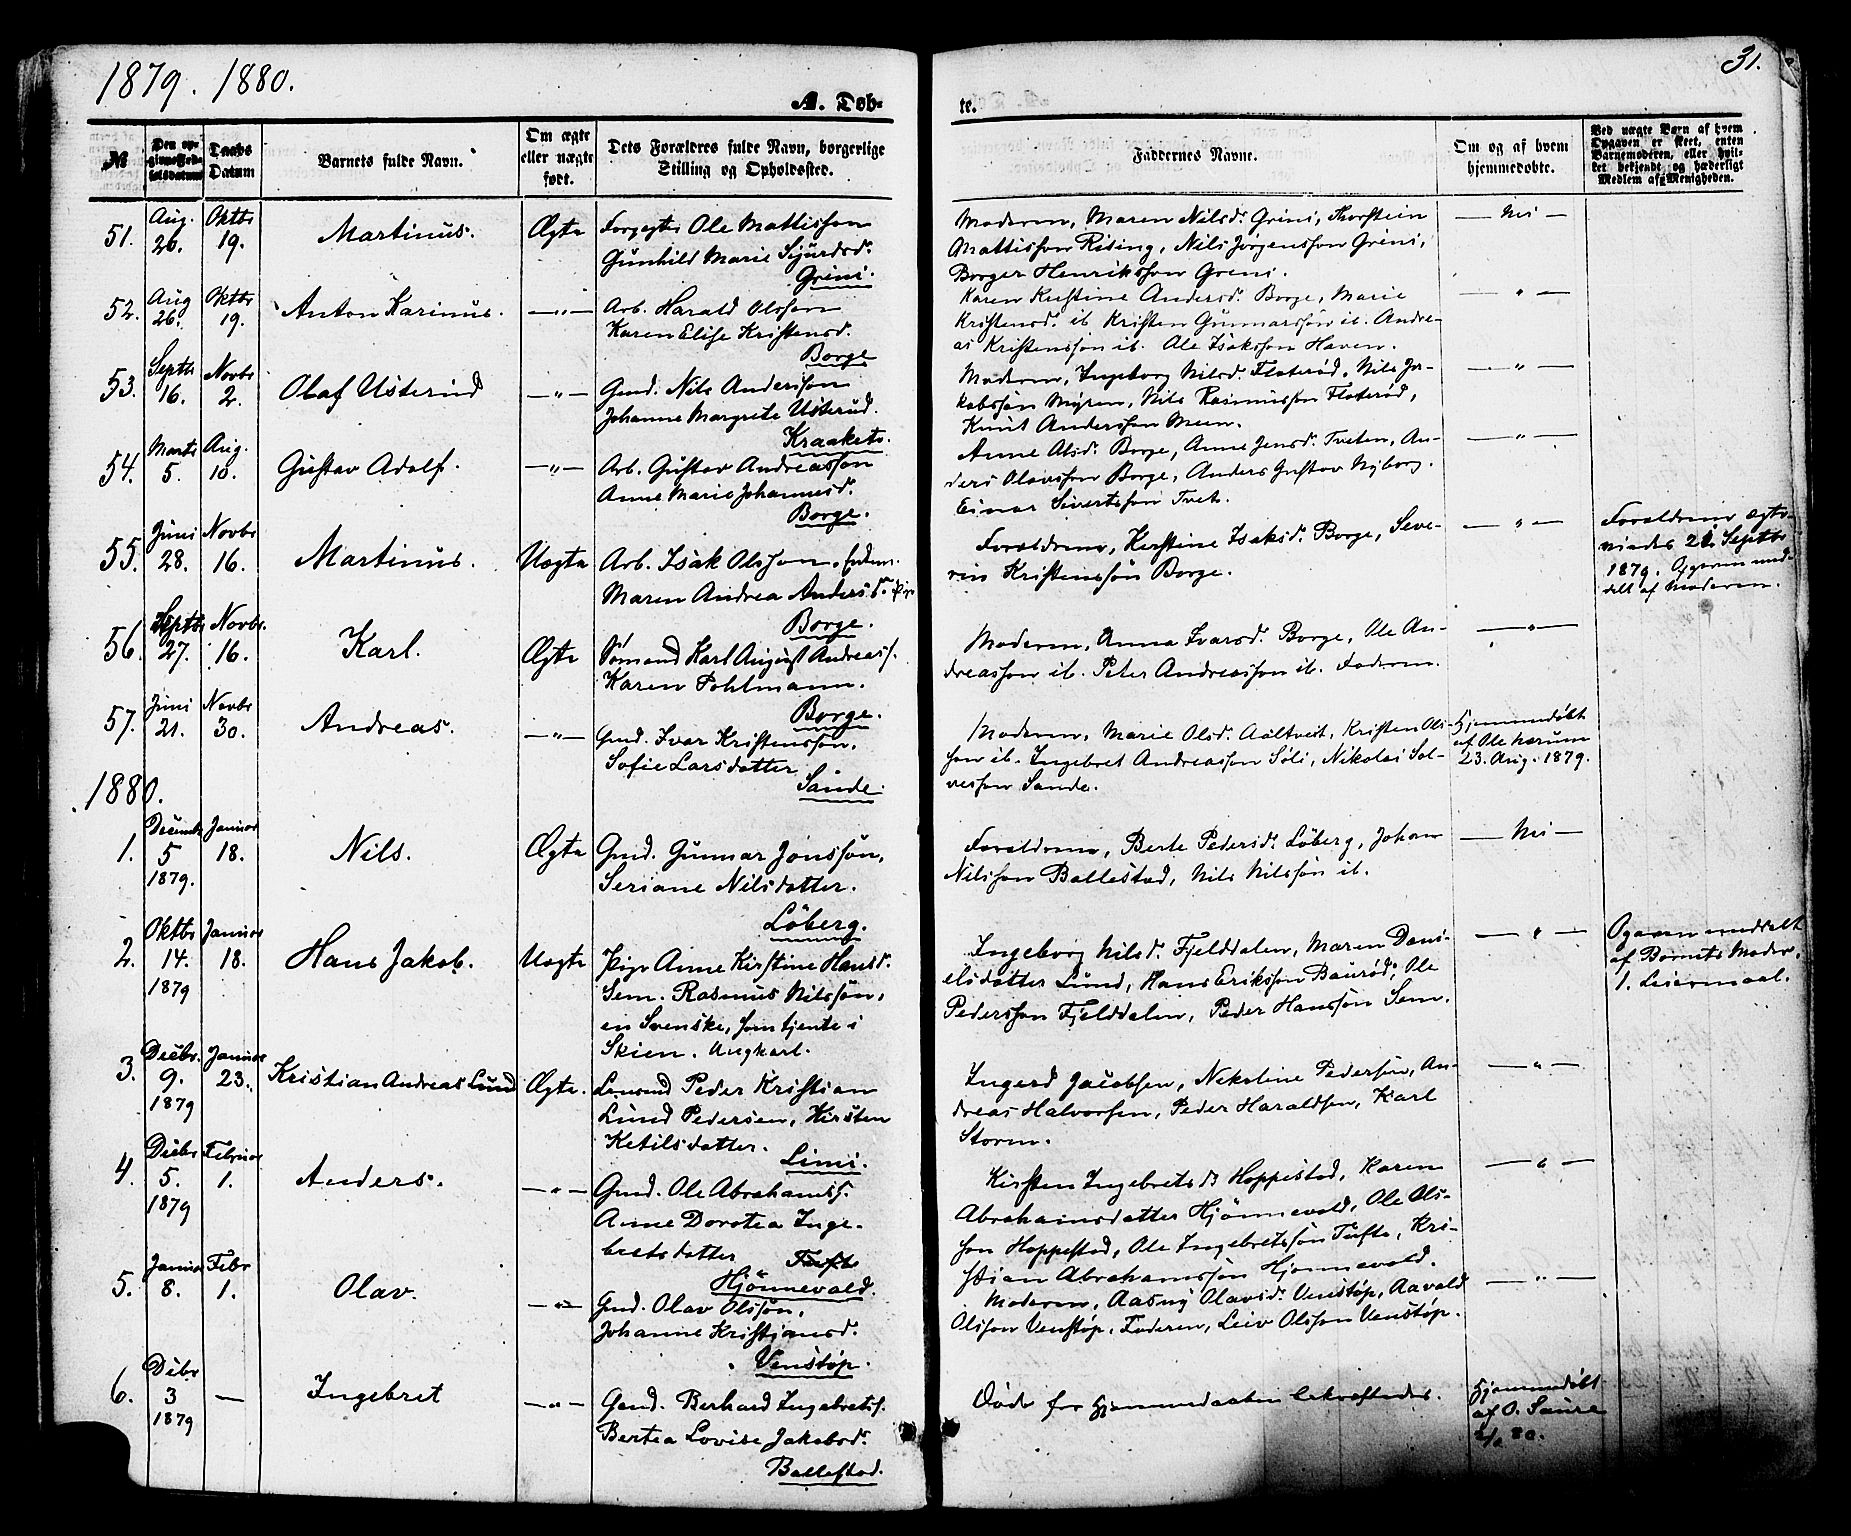 1879. 1880.
31.
A. Døb-
te.
№
Den op-
givne Fød-
selsdatum
Daabs
Datum
Barnets fulde Navn.
Om ægte
eller uægte
født.
Dets Forældres fulde Navn, borgerlige
Stilling og Opholdssted.
Faddernes Navne.
Om og af hvem
hjemmedøbt.
Ved uægte Barn af hvem
Opgaven er skeet, enten
Barnemoderen, eller hvil-
ket bekjendt og hæderligt
Medlem af Menigheden.
51.
Aug.
26.
Oktbr
19.
Martinus.
Ægte
Ole Mattisson
Gunhild Marie Sjurdsd.
Grini.
Moderen, Maren Nilsd. Grini, Thorstein
Mattisson Rising, Nils Jørgensson Grini,
Borger Henriksson Greni.
— Nei —
52.
Aug
26.
Oktbr
19.
Anton Karinus.
— " —
Arb. Harald Olsson
Karen Elise Kristensd.
Borge
Karen Kristine Andersd. Borge, Marie
Kristensd. ib. Kristen Gunnarsson ib. Andre-
as Kristensson ib. Ole Isaksson Haven.
— " —
53.
Septbr
16.
Novbr
2.
Olaf Usterud
— " —
Gmd. Nils Andersson
Johanne Margrete Usterud.
Moderen, Ingeborg Nilsd. Floterød, Nils Ja-
kobsson Myren, Nils Rasmusson Floterød,
Knut Andersson Meen.
— " —
54.
Marts
5.
Aug.
10.
Gustav Adolf.
— " —
Arb. Gustav Andreasson
Anne Marie Johannesd.
Borge.
Anne Olsd. Borge, Anne Jensd. Tveten, An-
ders Olavsson Borge, Anders Gustav Nyborg.
Einar Sivertsson Tvet.
— " —
55.
Juni
28.
Novbr
16.
Martinus.
Uægte
Arb. Isak Olsson,
Maren Andrea Andersd.
Borge.
Forældrene, Kerstine Isaksd. Borge, Seve-
rin Kristensson Borge.
— " —
Forældrene ægte-
viedes 21 Septbr
1879. Opgaven med-
delt af Moderen.
56.
Septbr
27.
Novbr.
16.
Karl.
Ægte
Sømand Karl August Andreass.
Karen Pohlmann.
Borge.
Moderen, Anna Ivarsd. Borge, Ole An-
dreasson ib. Peter Andreasson ib. Faderen.
— " —
57.
Juni
21.
Novbr
30.
Andreas.
— " —
Gmd. Ivar Kristensson,
Sofie Larsdatter
Sande
Moderen, Marie Olsd. Aaltvedt, Kristen Ols-
son ib. Ingebret Andreasson Soli, Nikolai Sol-
vesson Sande.
Hjemmedøbt
af Ole Nærum
23. Aug. 1879.
1880.
1.
Decembr
5
1879.
Januar
18.
Nils.
Ægte
Gmd. Gunnar Jonsson,
Seriane Nilsdatter.
Löberg.
Forældrene, Berte Pedersd. Löberg, Johan
Nilsson Ballestad, Nils Nilsson ib.
— Nei —
2.
Oktbr
14.
1879
Januar
18.
Hans Jakob.
Uægte
Pige Anne Kirstine Hansd.
Sem. Rasmus Nilsson,
en Svenske, som tjente i
Skien. Ungkarl.
Ingeborg Nilsd. Fjelddalen, Maren Dani-
elsdatter Lund, Hans Eriksson Baurød, Ole
Pedersson Fjelddalen, Peder Hansson Sem.
— " —
Opgaven meddelt
af Barnets Moder.
1. Leiermaal.
3.
Decbr.
9.
1879
Januar
23.
Kristian Andreas Lund
Ægte.
Lensmd Peder Kristian
Lund Pedersen, Kirsten
Ketilsdatter.
Limi.
Ingerd Jacobsen, Nikoline Pedersen, An-
dreas Halvorsen, Peder Haraldsen, Karl
Storm.
— " —
4.
Decbr
5.
1879
Februar
1.
Anders.
— " —
Gmd. Ole Abrahamss.
Anne Dorotea Inge-
bretsdatter
Tufte
Hjönnevald.
Kirsten Ingebretsd. Hoppestad, Karen
Abrahamsdatter Hjönnevald, Ole Ols-
son Hoppestad, Ole Ingebretsson Tufte, Kri-
stian Abrahamsson Hjonnevald.
— " —
5.
Januar
8.
Febr
1.
Olav.
— " —
Gmd. Olav Olsson,
Johanne Kristjansd.
Venstøp.
Moderen, Aasny Olavsd. Venstøp, Aavald
Olsson Venstøp, Faderen, Leiv Olsson Venstøp.
— " —
6.
Decbr
3
1879
—
Ingebret
— " —
Gmd. Berhard Ingebretss.
Bertea Lovise Jakobsd.
Ballestad.
Döde før Hjemmedaaben bekræftedes.
Hjemmedøbt
af O. Saure